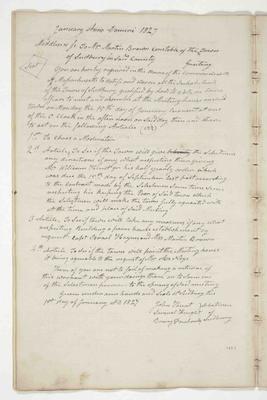 January Anno Domini 1827
Middlesex Ss. To Mr. Martin Brown Constable of the Town
of Sudbury in Said County Greeting
Seal
You are hereby required in the Name of the Commonwealth
of Massachusetts to notify and warn all the Inhabitants
of the Town of Sudbury qualified by law to vote in town
affairs to meet and assemble at the Meeting house in said
Town on Monday the 15th day of January instant at one
of the O'clock in the afternoon on Said day then and there
to act on the following Articles (viz)
1st To Choose a Moderator
2d Article, To See if the Town will give the Selectmen
any directions if any what respecting their giving
Mr. William Hunt for his last quarterly order which
was due the 15th day of September last past according
to the Contract made by the Selectmen
respecting his keeping the Poor of said Town which
the Selectmen will
at the time and place of said Meeting
3 Article, To See if town will take any measures if any what
respecting Building a powder house
request Capt. Israel Haynes and Mr. Martin Brown
4th Article To See if the town will
if being agreeable to the request of
There of you are not to fail of making a return of
this warrant with your doings there on to Some one
of the Selectmen previous to the opening of said meeting
Given under our hands and Seals at Sudbury this
1st day of January AD. 1827
John Hunt Selectmen
of
Sudbury